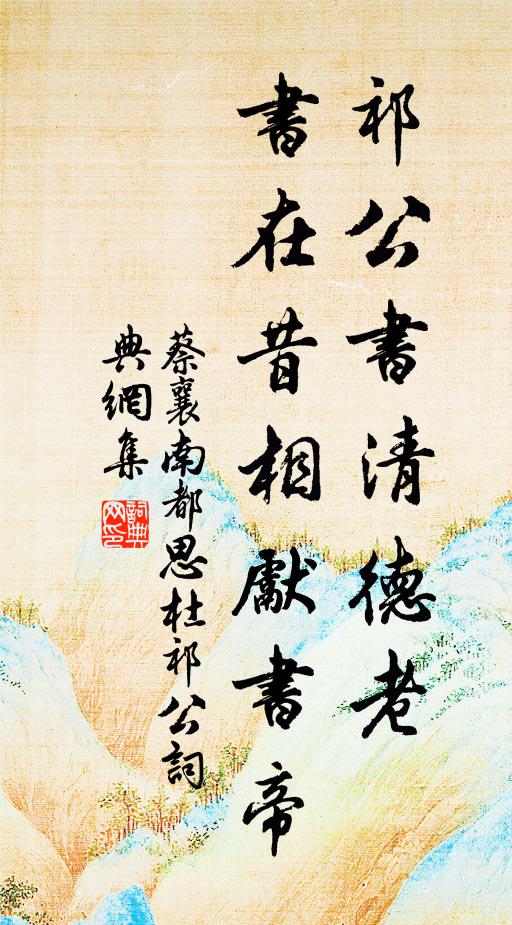 祁公書清德老
書在昔相獻書帝
蔡襄南都思杜祁公詞
典網集
詞典網印